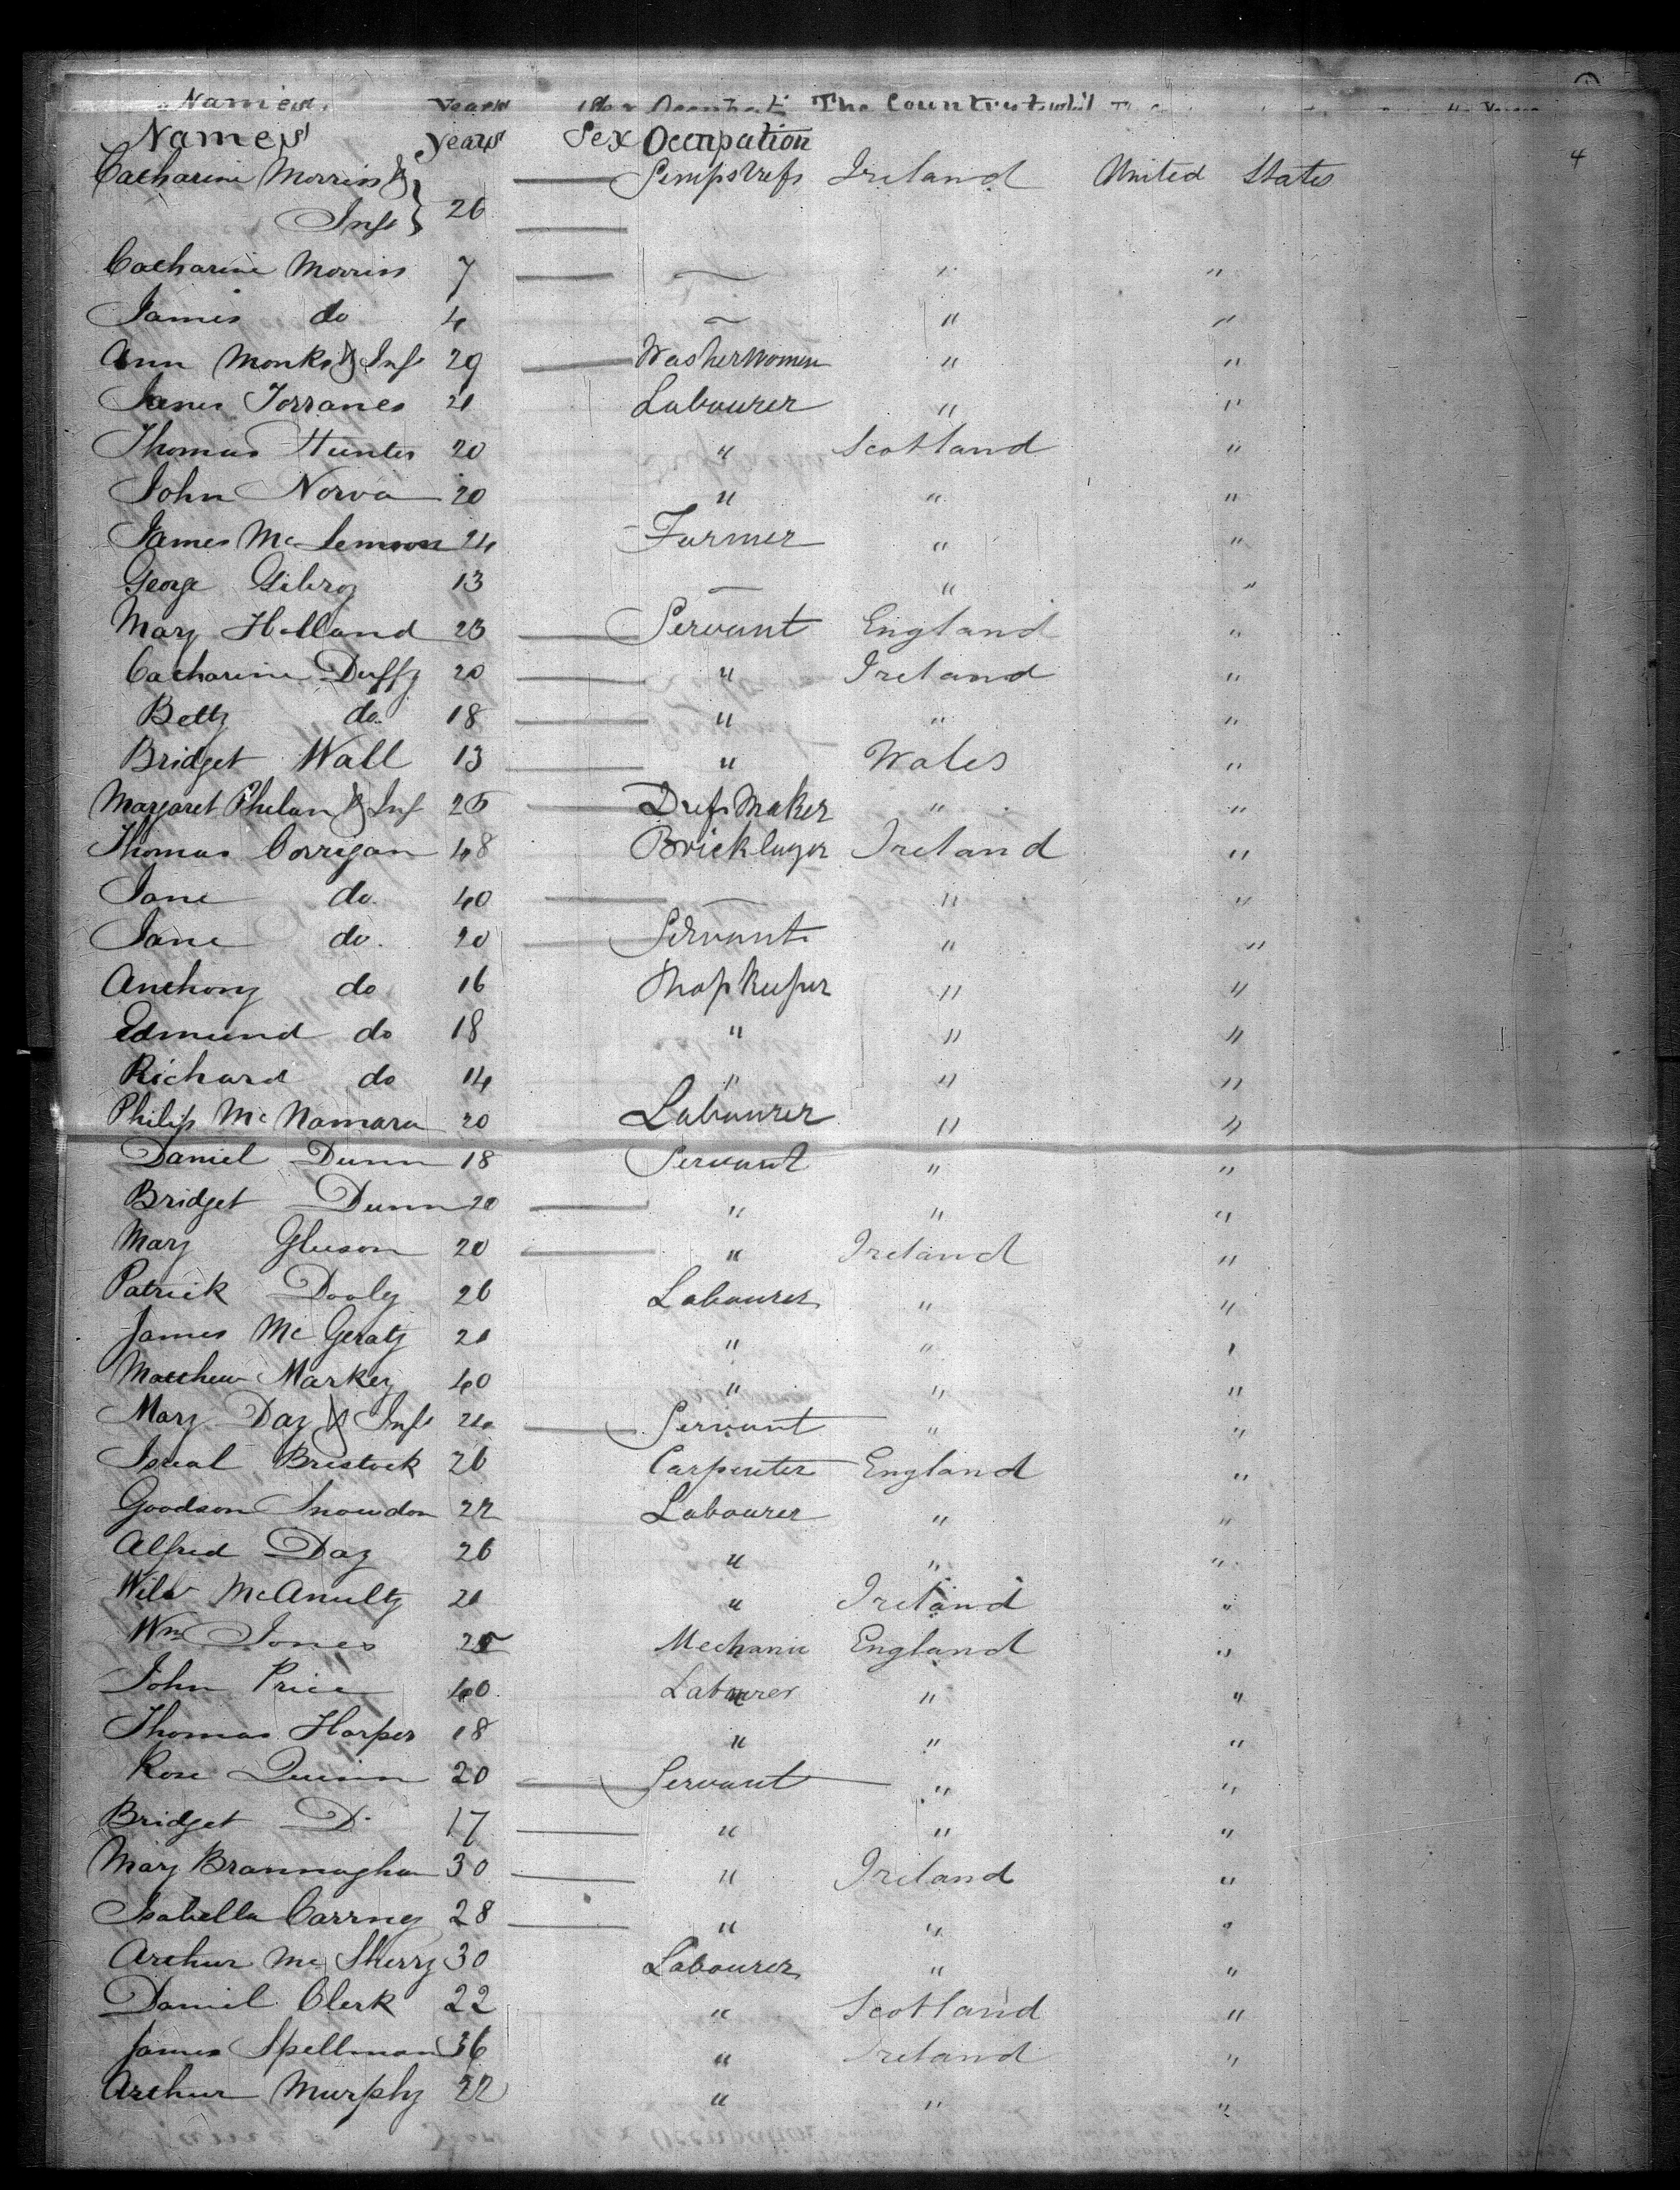 Names Years The Country to wh
4
Names Years Sex Occupation
Catharine Morriss & Sempstress Ireland United States
Inft } 26
Catharine Morriss 7 — " "
James do 4 — " "
Ann Monks & Inft 29 Washerwomen " "
James Torrance 21 Labourer " "
Thomas Hunter 20 " Scotland "
John Norva 20 " " "
James Mc Lemon 24 Farmer " "
George Gilroy 13 — " "
Mary Holland 23 Servant England "
Catharine Duffy 20 " Ireland "
Betty do. 18 " " "
Bridget Wall 13 " Wales "
Margaret Phelan & Inf 25 Dressmaker " "
Thomas Corrigan 48 Bricklayer Ireland "
Jane do. 40 — " "
Jane do. 20 Servant " "
Anthony do 16 Shopkeeper " "
Edmund do 18 " " "
Richard do 14 " " "
Philip McNamara 20 Labourer " "
Daniel Dunn 18 Servant " "
Bridget Dunn 20 " " "
Mary Gleeson 20 " Ireland "
Patrick Dooly 26 Labourer " "
James McGeraty 21 " " "
Matthew Markey 40 " " "
Mary Day & Inft 24 Servant " "
Isreal Bristock 26 Carpenter England "
Goodson Snowdon 22 Labourer " "
Alfred Day 26 " " "
Will McAnulty 21 " Ireland "
Wm Jones 25 Mechanic England "
John Price 40 Labourer " "
Thomas Harper 18 " " "
Rose Quinn 20 Servant " "
Bridget D. 17 " " "
Mary Brannaghan 30 " Ireland "
Isabella Carrney 28 " " "
Arthur McSherry 30 Labourer " "
Daniel Clerk 22 " Scotland "
James Spellman 36 " Ireland "
Arthur Murphy 22 " " "